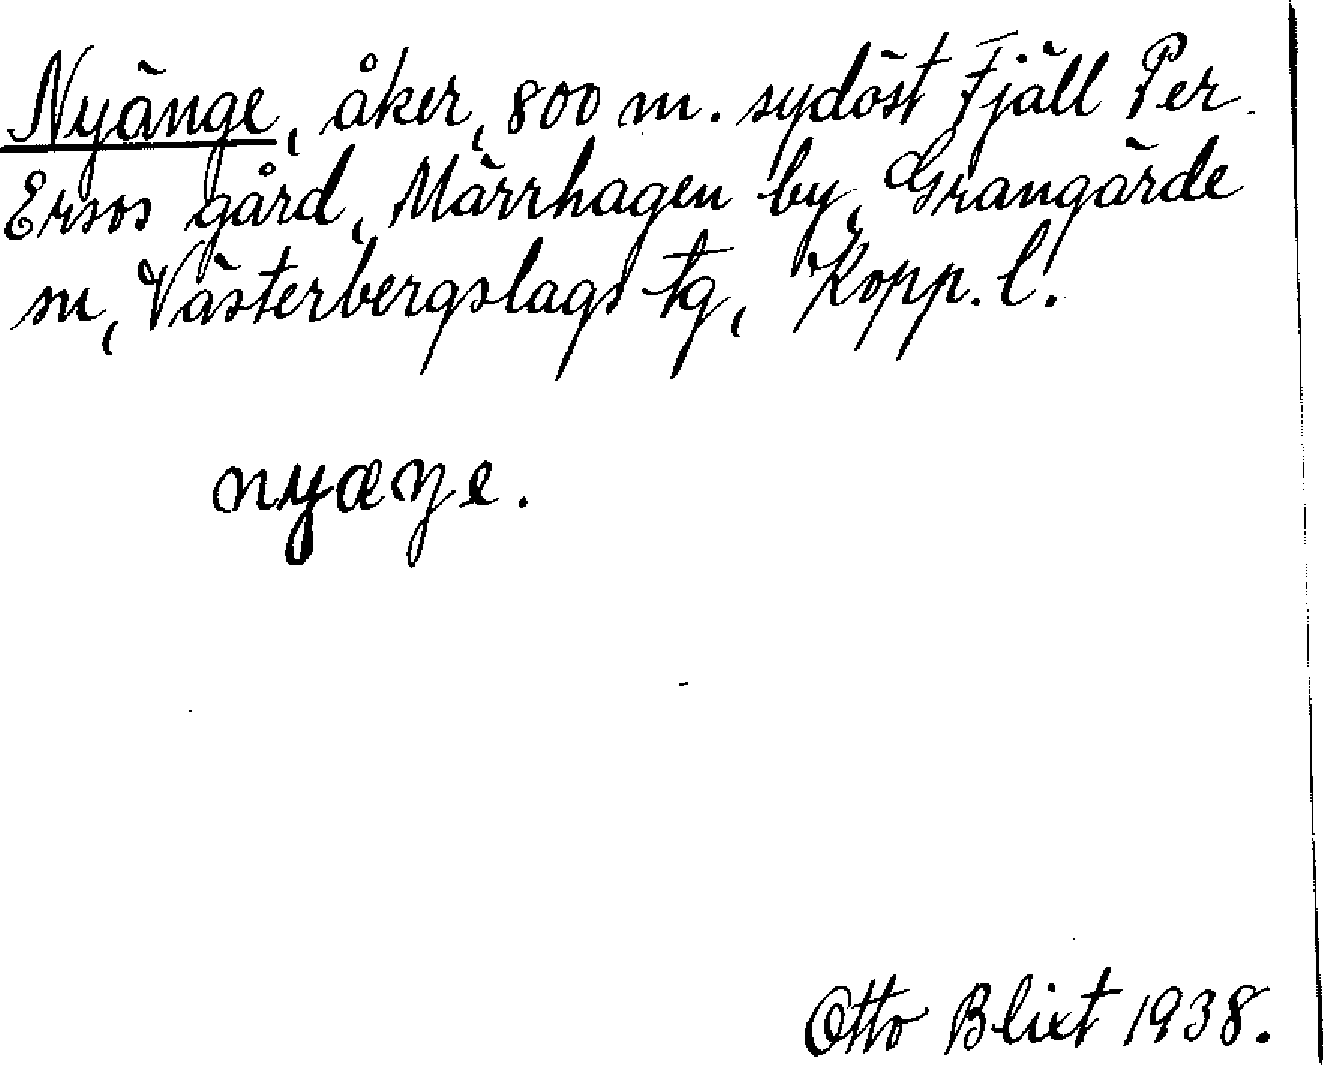 Nyänge, åker, 800 m. sydöst Fjäll Per
Ersos gård, Märrhagen by, Grangärde
sn, Västerbergslags tg, Kopp. l.
nyæŋe.
Otto Blixt 1938.